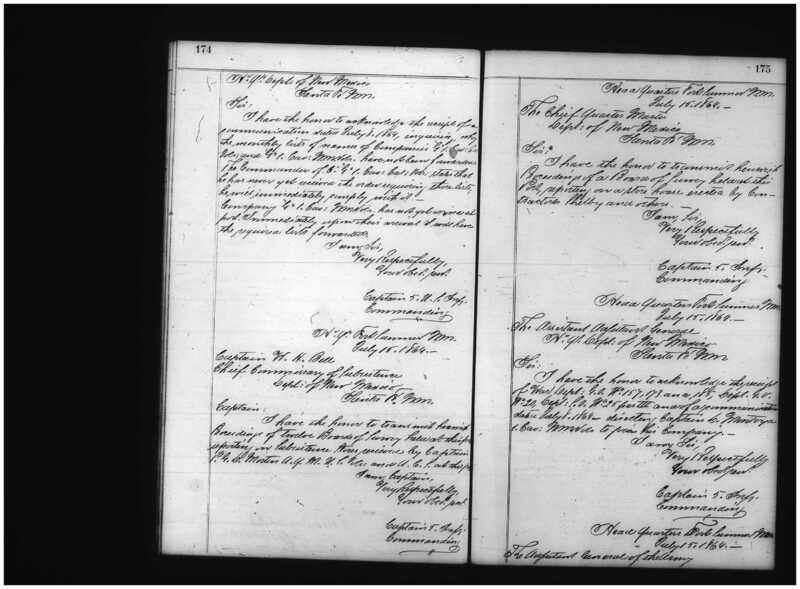 174
Hd. Qrs. Dept. of New Mexico
Santa Fé N.M.
Sir:
I have the honor to acknowledge the receipt of a
communication dated July 8. 1864, inquiring why
the monthly lists of names of Companies
Vols: and 1. Cav: N.M. Vols: have not been forwarded.
The Commander of Co. 1. Cav: Cal. Vols. states that
he has never yet received the order requiring these lists,
he will immediately comply with it.—
Company 1. Cav: N.M. Vols. has not yet arrived at
post. Immediately upon their arrival I will have
the required lists forwarded.
I am, Sir,
Very Respectfully,
Your obed. serv.
Captain 5. U.S. Infy.
Commanding
Hd. Qrs. Fort Sumner N.M.
July 15. 1864.—
Captain W. H. Bell
Chief Commissary of Subsistence
Dept: of New Mexico
Santa Fé N.M.
Captain:
I have the honor to transmit herewith
Proceedings of twelve Boards of Survey held at this post
reporting on Subsistence Stores received by Captain
A.Q.M. U.S. Vols and A.C.S. at this post
I am, Captain,
Very Respectfully,
Your obed. serv.
Captain 5. Infy.
Commanding
175
Head Quarters Fort Sumner N.M.
July 15. 1864.—
The Chief Quarter Master
Dept: of New Mexico
Santa Fé N.M.
Sir:
I have the honor to transmit herewith
Proceedings of a Board of Survey held at this
Post, reporting on a store house erected by Con-
tractors Shelby and others.—
I am, Sir,
Very Respectfully
Your obed. serv.
Captain 5. Infy.
Commanding
Head Quarters Fort Sumner N.M.
July 15. 1864.—
The Assistant Adjutant General
Hd. Qrs. Dept: of New Mexico
Santa Fé N.M.
Sir:
I have the honor to acknowledge the receipt
of War Dept: G.O. No. 157, 171 and 178, Dept: G.O.
No. 20, Dept: S.O. No. 25 further and of a communication
dated July 8. 1864 directing Captain
1. Cav: N.M. Vols to join his Company.—
I am, Sir,
Very Respectfully
Your obed. serv.
Captain 5. Infy.
Commanding
Head Quarters Fort Sumner N.M.
July 15. 1864.—
The Adjutant General of the Army